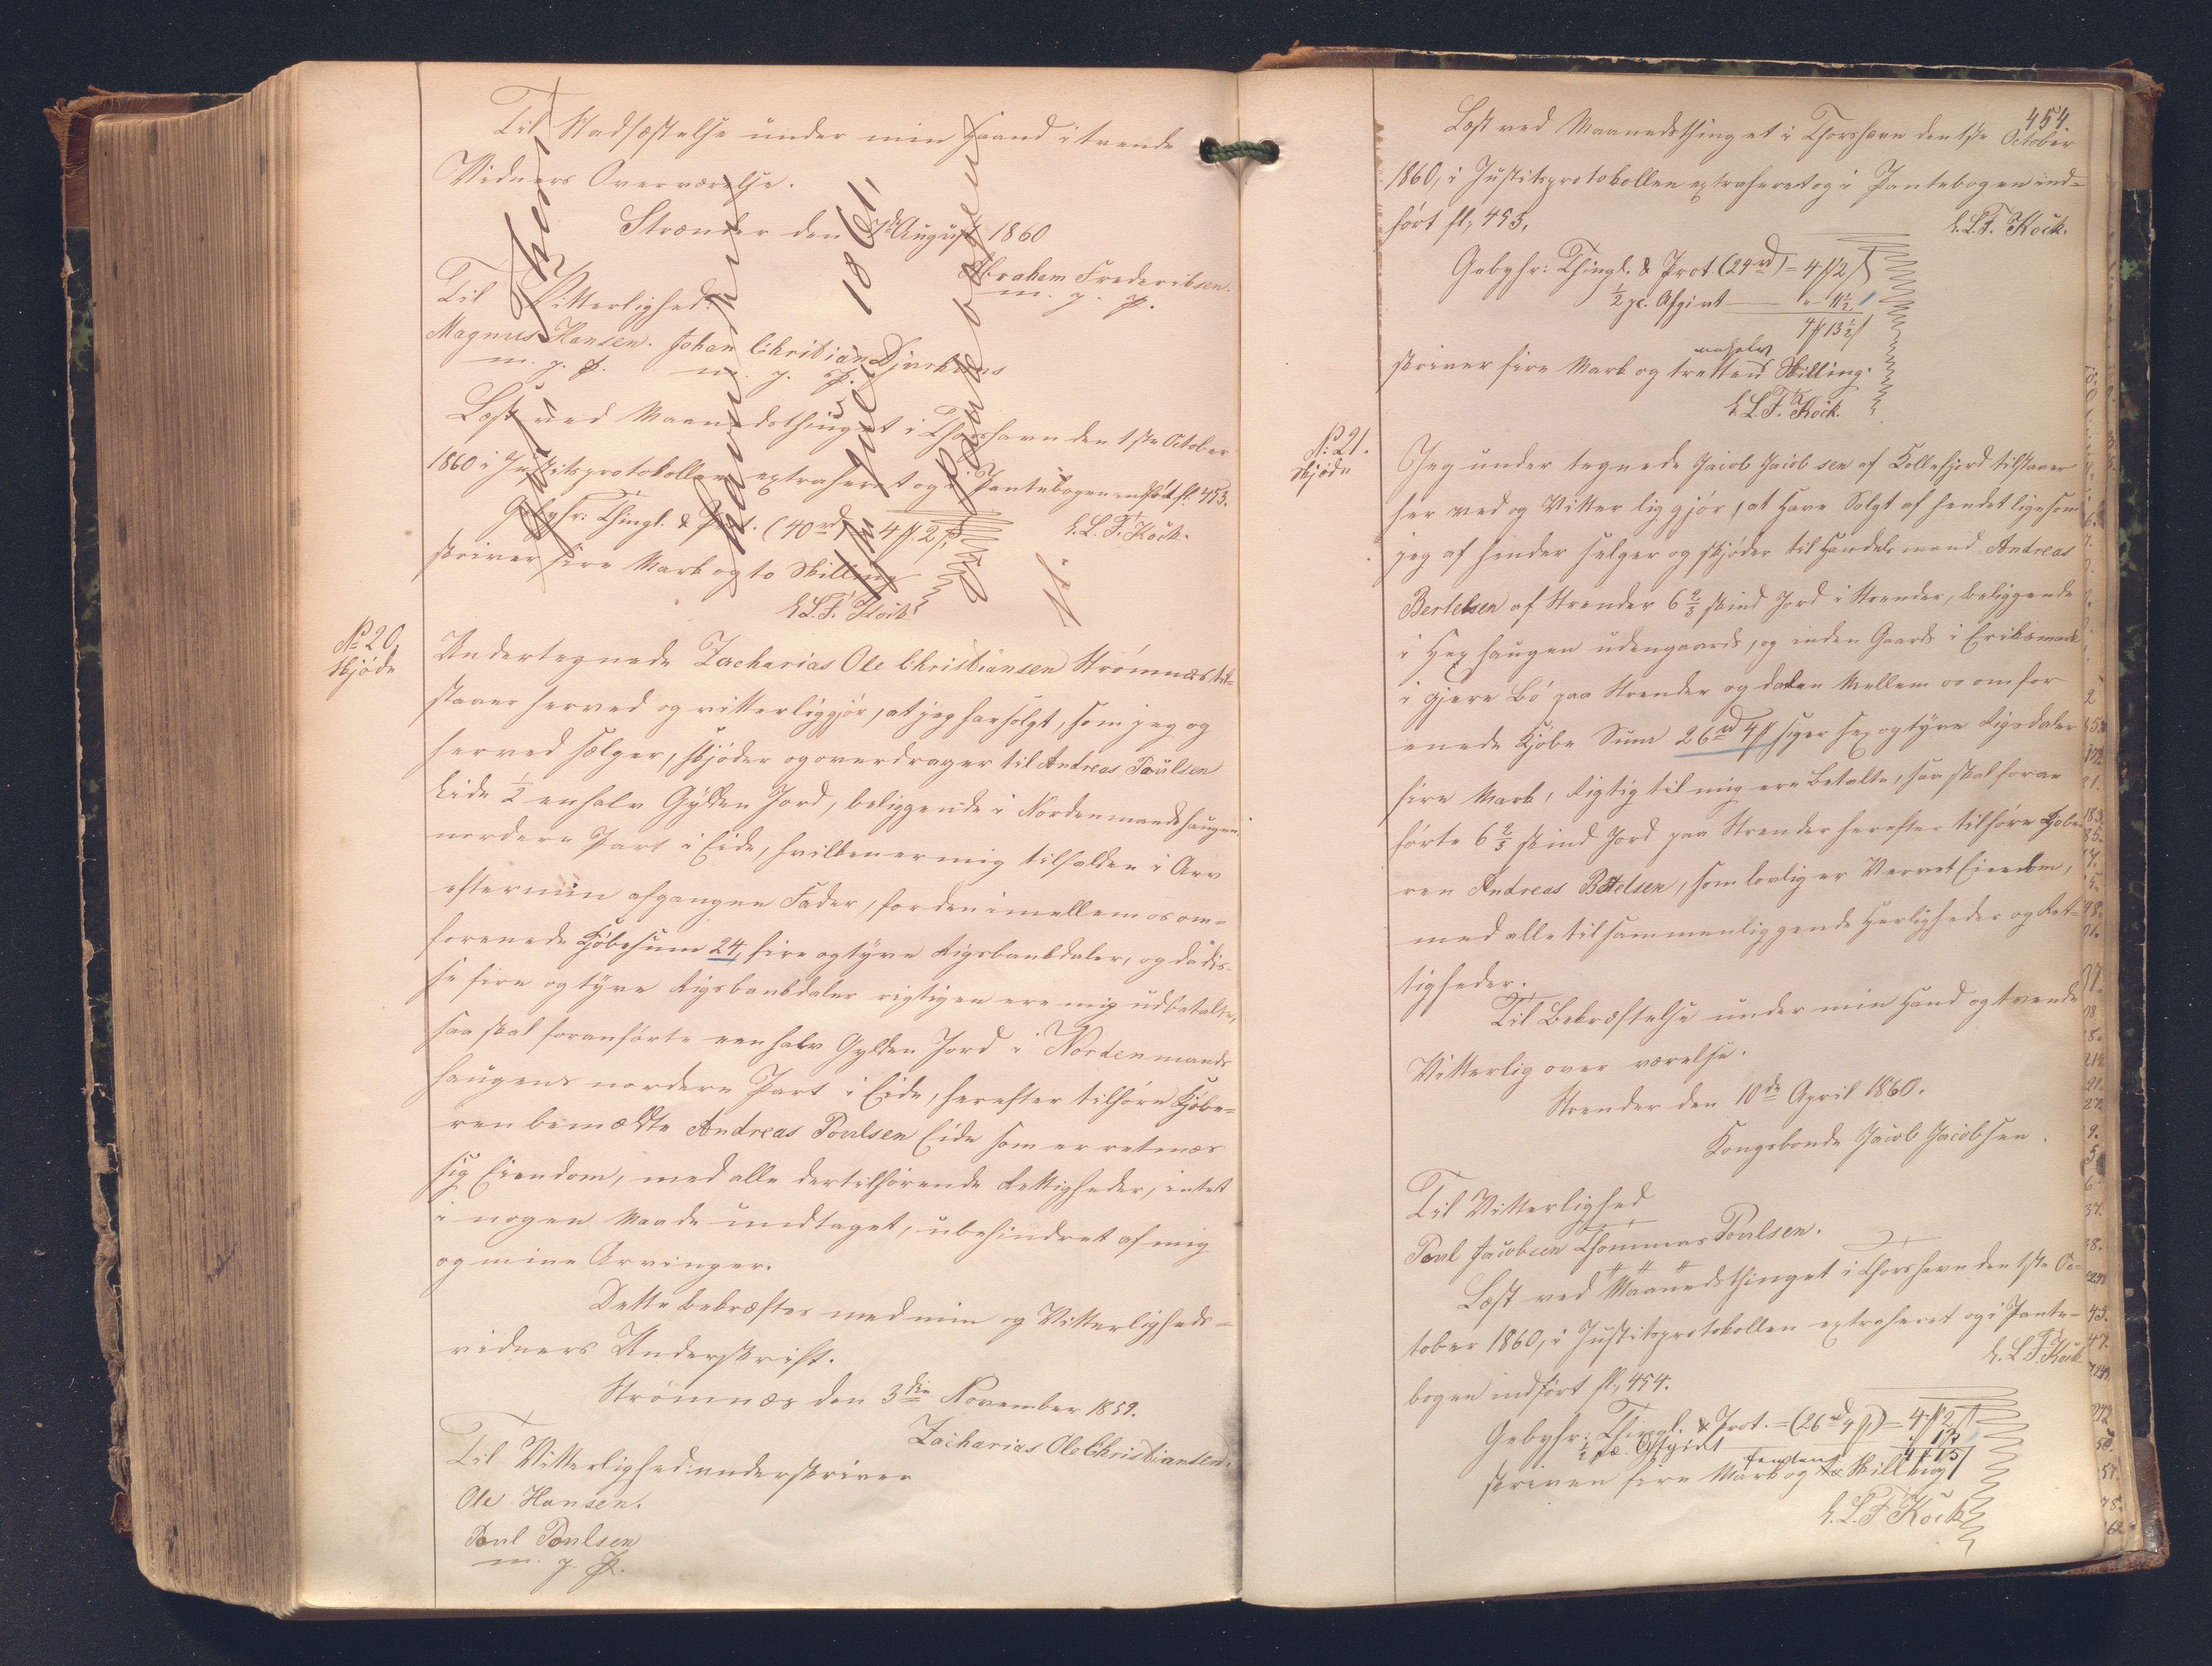 Til Stadfæstelse under min Haand i tvende
Vidners Overværelse.
Strænder den August 1860
Abraham Frederiksen.
m. p. p.
Til Vitterlighed:
Magnus Hansen. Johan Christian Djurhuus
m. p. p. m. p. p.
Læst ved Maanedsthinget i Thorshavn den 1ste October
1860 i Justitsprotokollen extraheret og i Pantebogen indført fl. 453.
Gebyhr: Thingl. & Prot. (40 rd) = 4 ℳ 2 β.
E. L. T. Kock.
skriver fire Mark og to Skilling
E. L. T. Kock
1861
No 20.
Skjøde
Undertegnede Zacharias Ole Christiansen Strømnæs til-
staaer herved og vitterliggjør, at jeg har solgt, som jeg og
herved sælger, skjøder og overdrager til Andreas Poulsen
Eide ½ en halv Gylden Jord, beliggende i Nordenmandshaugens
nordere Part i Eide, hvilken er mig tilfalden i Arv
efter min afgangne Fader, for den imellem os om-
forenede Kjøbesum 24, fire og tyve Rigsbankdaler, og da dis-
se fire og tyve Rigsbankdaler rigtigen ere mig udbetalte,
saa skal foranførte een halv Gylden Jord i Nordenmands
haugens nordere Part i Eide, herefter tilhøre Kjøbe-
ren bemældte Andreas Poulsen Eide som er retmæs
sig Eiendom, med alle dertilhørende Rettigheder, intet
i nogen Maade undtaget, ubehindret af mig
og mine Arvinger.
Dette bekræftes med min og Vitterligheds-
vidners Underskrift.
Strømnæs den 3die November 1859.
Zacharias Ole Christiansen.
Til Vitterlighed underskriver
Ole Hansen.
Poul Poulsen
m. p. p.
454.
Læst ved Maanedsthinget i Thorshavn den 1ste October
1860, i Justitsprotokollen extraheret og i Pantebogen ind-
ført fl. 453.
E. L. T. Kock.
Gebyhr: Thingl. & Prot (24 rd) = 4 ℳ 2 β
½ pc. Afgivt — " 11½
4 ℳ 13½ β
skriver fire Mark og tretten en halv Skilling.
E. L. T. Kock.
No 21.
Skjøde
Jeg under tegnede Jacob Jacob sen af Kollefjord tilstaaer
her ved og Vitter lig gjør, at Have Solgt af hendet ligesom
jeg af hender selger og skjøder til Handelsmand Andreas
Bertelsen af Strender 6 ⅔ skind Jord i Strender, beliggende
i Hex haugen udengaards, og inden Gaards i Eriksmark
i gjere Bø paa Strender og da den Mellem os omfor
enede Kjøbe Sum 26 rd 4 ℳ siger sex og tyve Rigsdaler
fire Mark, Rigtig til mig ere Betalte, saa skal foran
førte 6 ⅔ skind Jord paa Strender herefter tilhøre Kjøbe-
ren Andreas Bertelsen, som lovlig er Vervet Eiendom,
med alle til sammenliggende Herligheder og Ret-
tigheder.
Til Bekræftelse under min Hand og tvende
Vitterlig over værelse.
Strender den 10de April 1860.
Kongsbonde Jacob Jacobsen.
Til Vitterlighed
Poul Jacobsen Thommas Poulsen.
Læst ved Maanedsthinget i Thorshavn den 1ste Oc-
tober 1860, i Justitsprotokollen extraheret og i Pante-
bogen indført fl. 454.
E. L. T. Kock
Gebyhr: Thingl. & Prot. = (26 rd 4 ℳ) = 4 ℳ 2 β
½ pc. Afgivt
4 ℳ 15 β
skriver fire Mark og femten Skilling
E. L. T. Kock